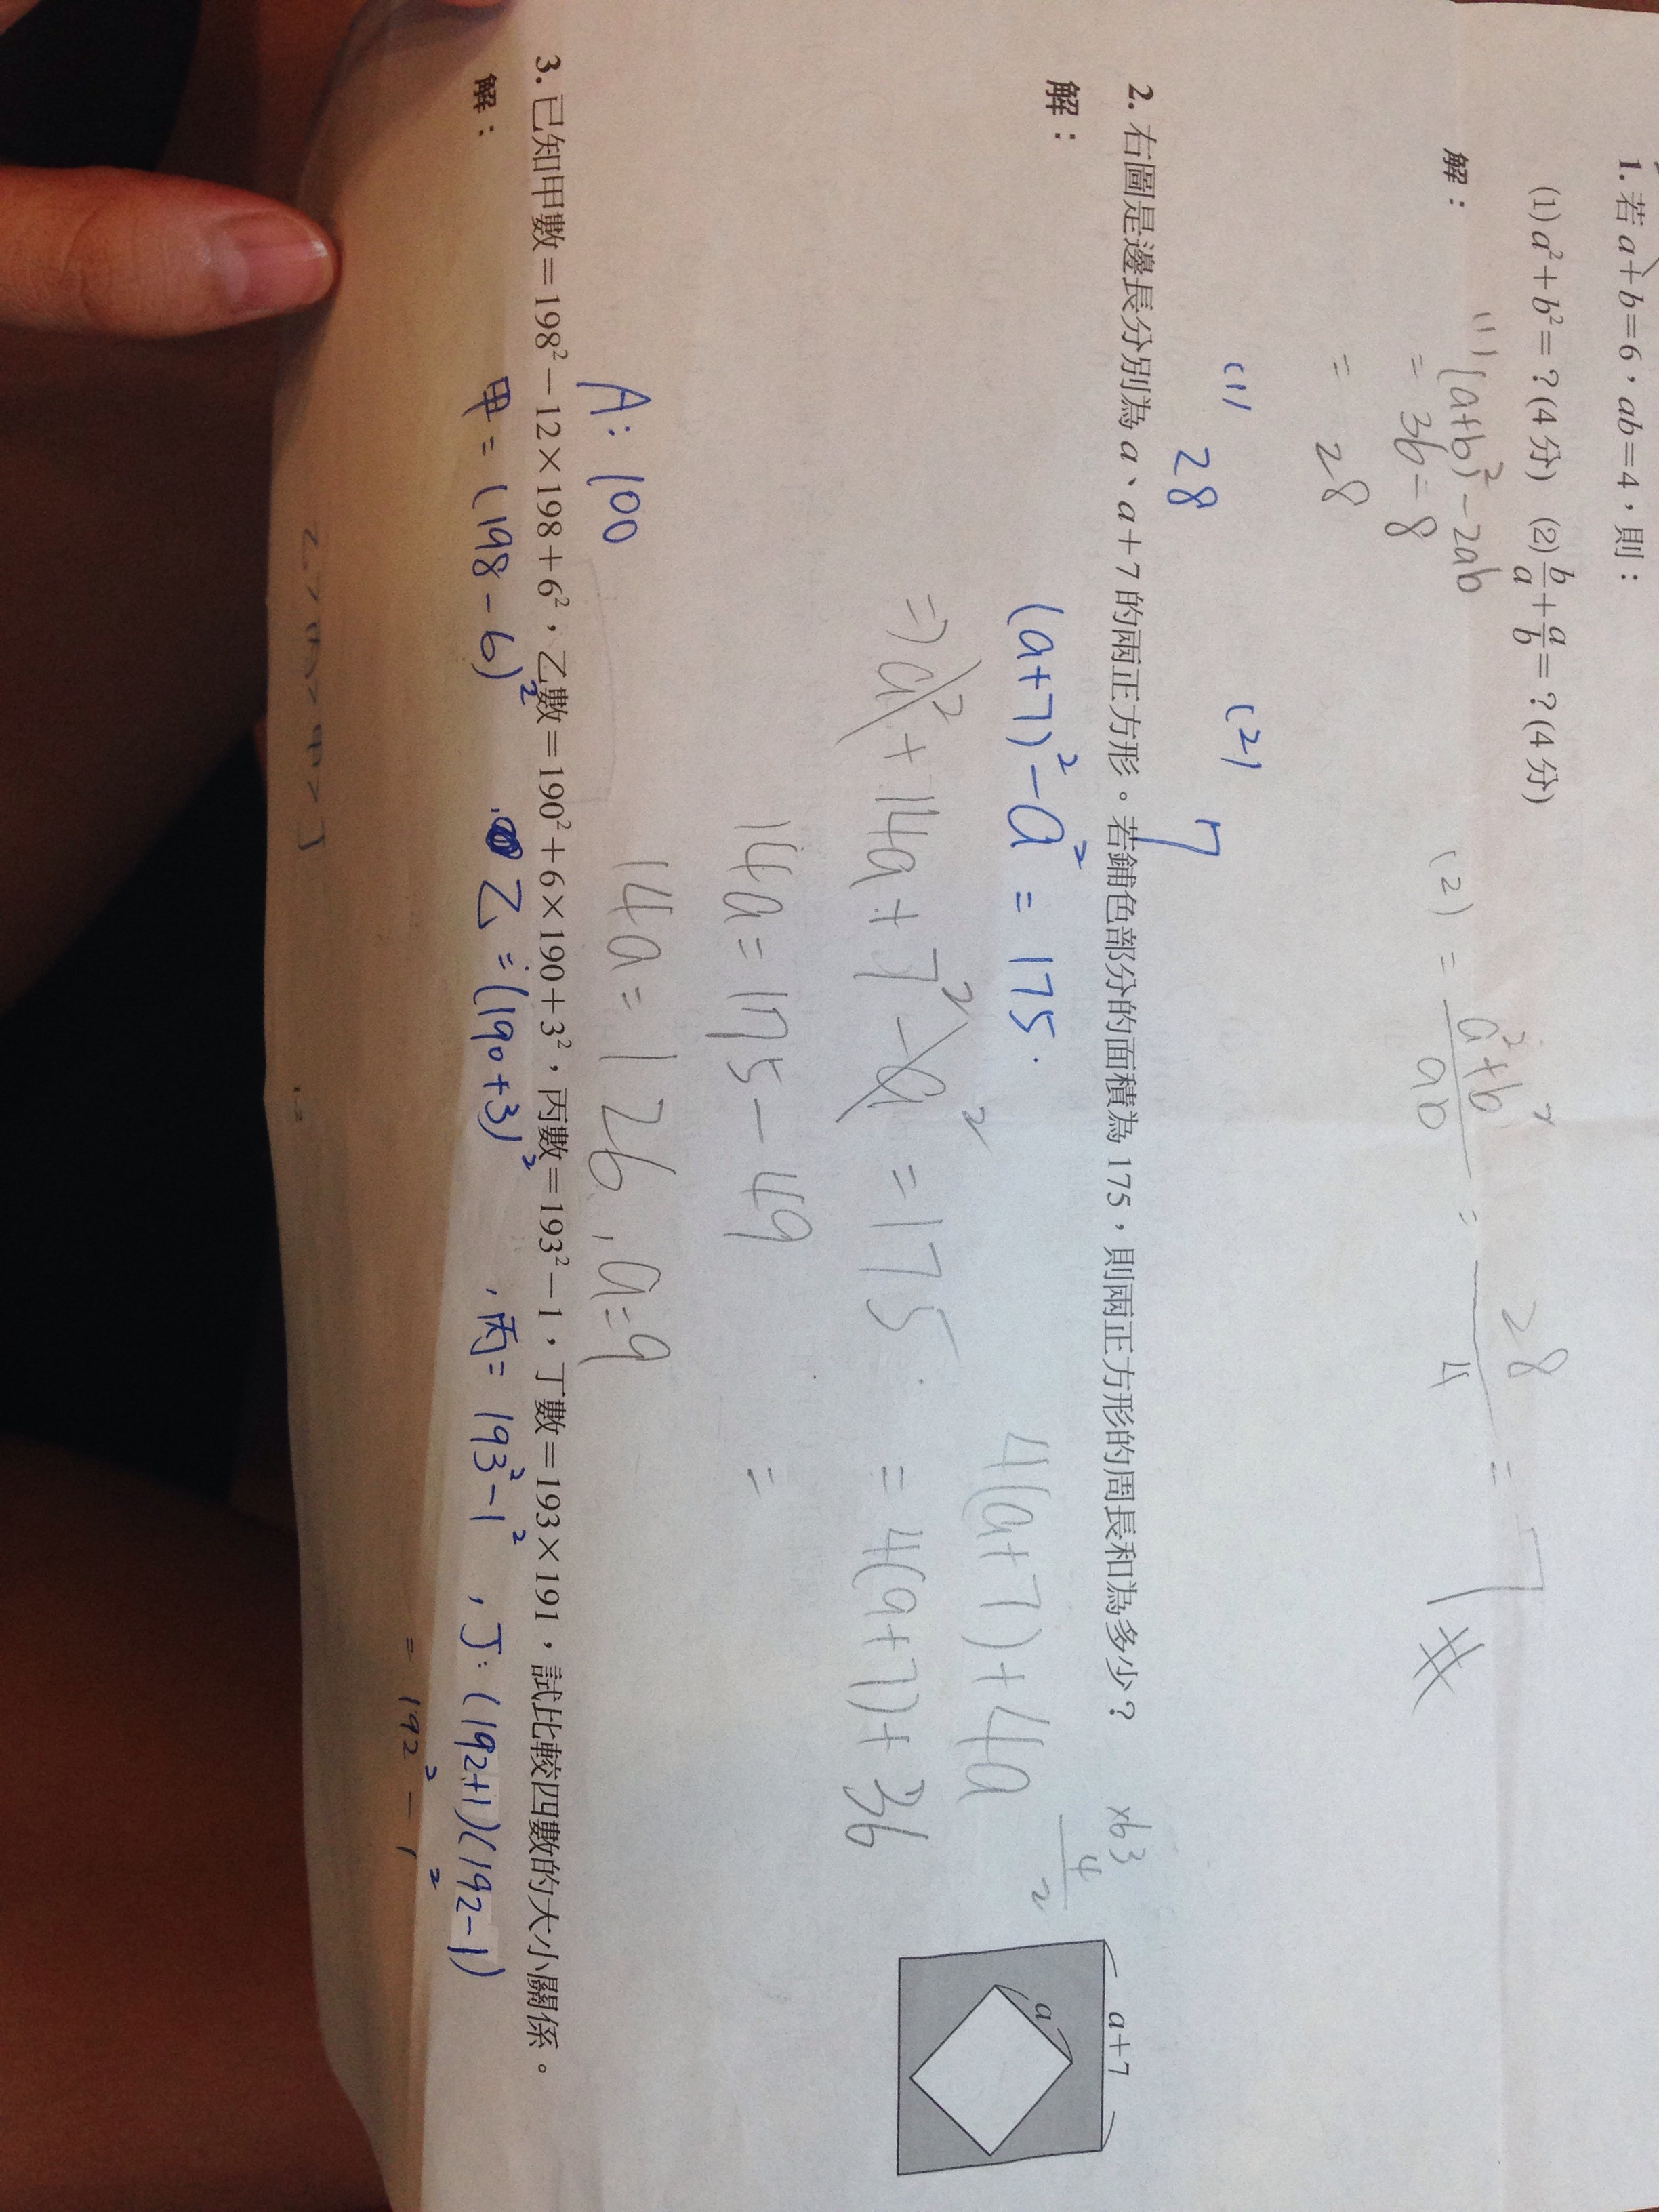 1. 若 a+b=6，ab=4，則：
(1) a²+b²=？(4分) (2) b/a+a/b=？(4分)
解：
(1) (a+b)²-2ab
=36-8
=28
(2) = a²+b²/ab = 28/4 = 7
(1) 28 (2) 7
2. 右圖是邊長分別為 a、a+7 的兩正方形。若鋪色部分的面積為 175，則兩正方形的周長和為多少？
解：
(a+7)²-a²=175.
=>a²+14a+7²-a²=175
14a=175-49
14a=126, a=9
4(a+7)+4a
=4(9+7)+36
=
A: 100
a+7
a
3. 已知甲數=198²-12×198+6²，乙數=190²+6×190+3²，丙數=193²-1，丁數=193×191，試比較四數的大小關係。
解：
甲=(198-6)² 乙=(190+3)² , 丙=193²-1² , 丁:(192+1)(192-1)
=192²-1²
乙>丙>甲>丁